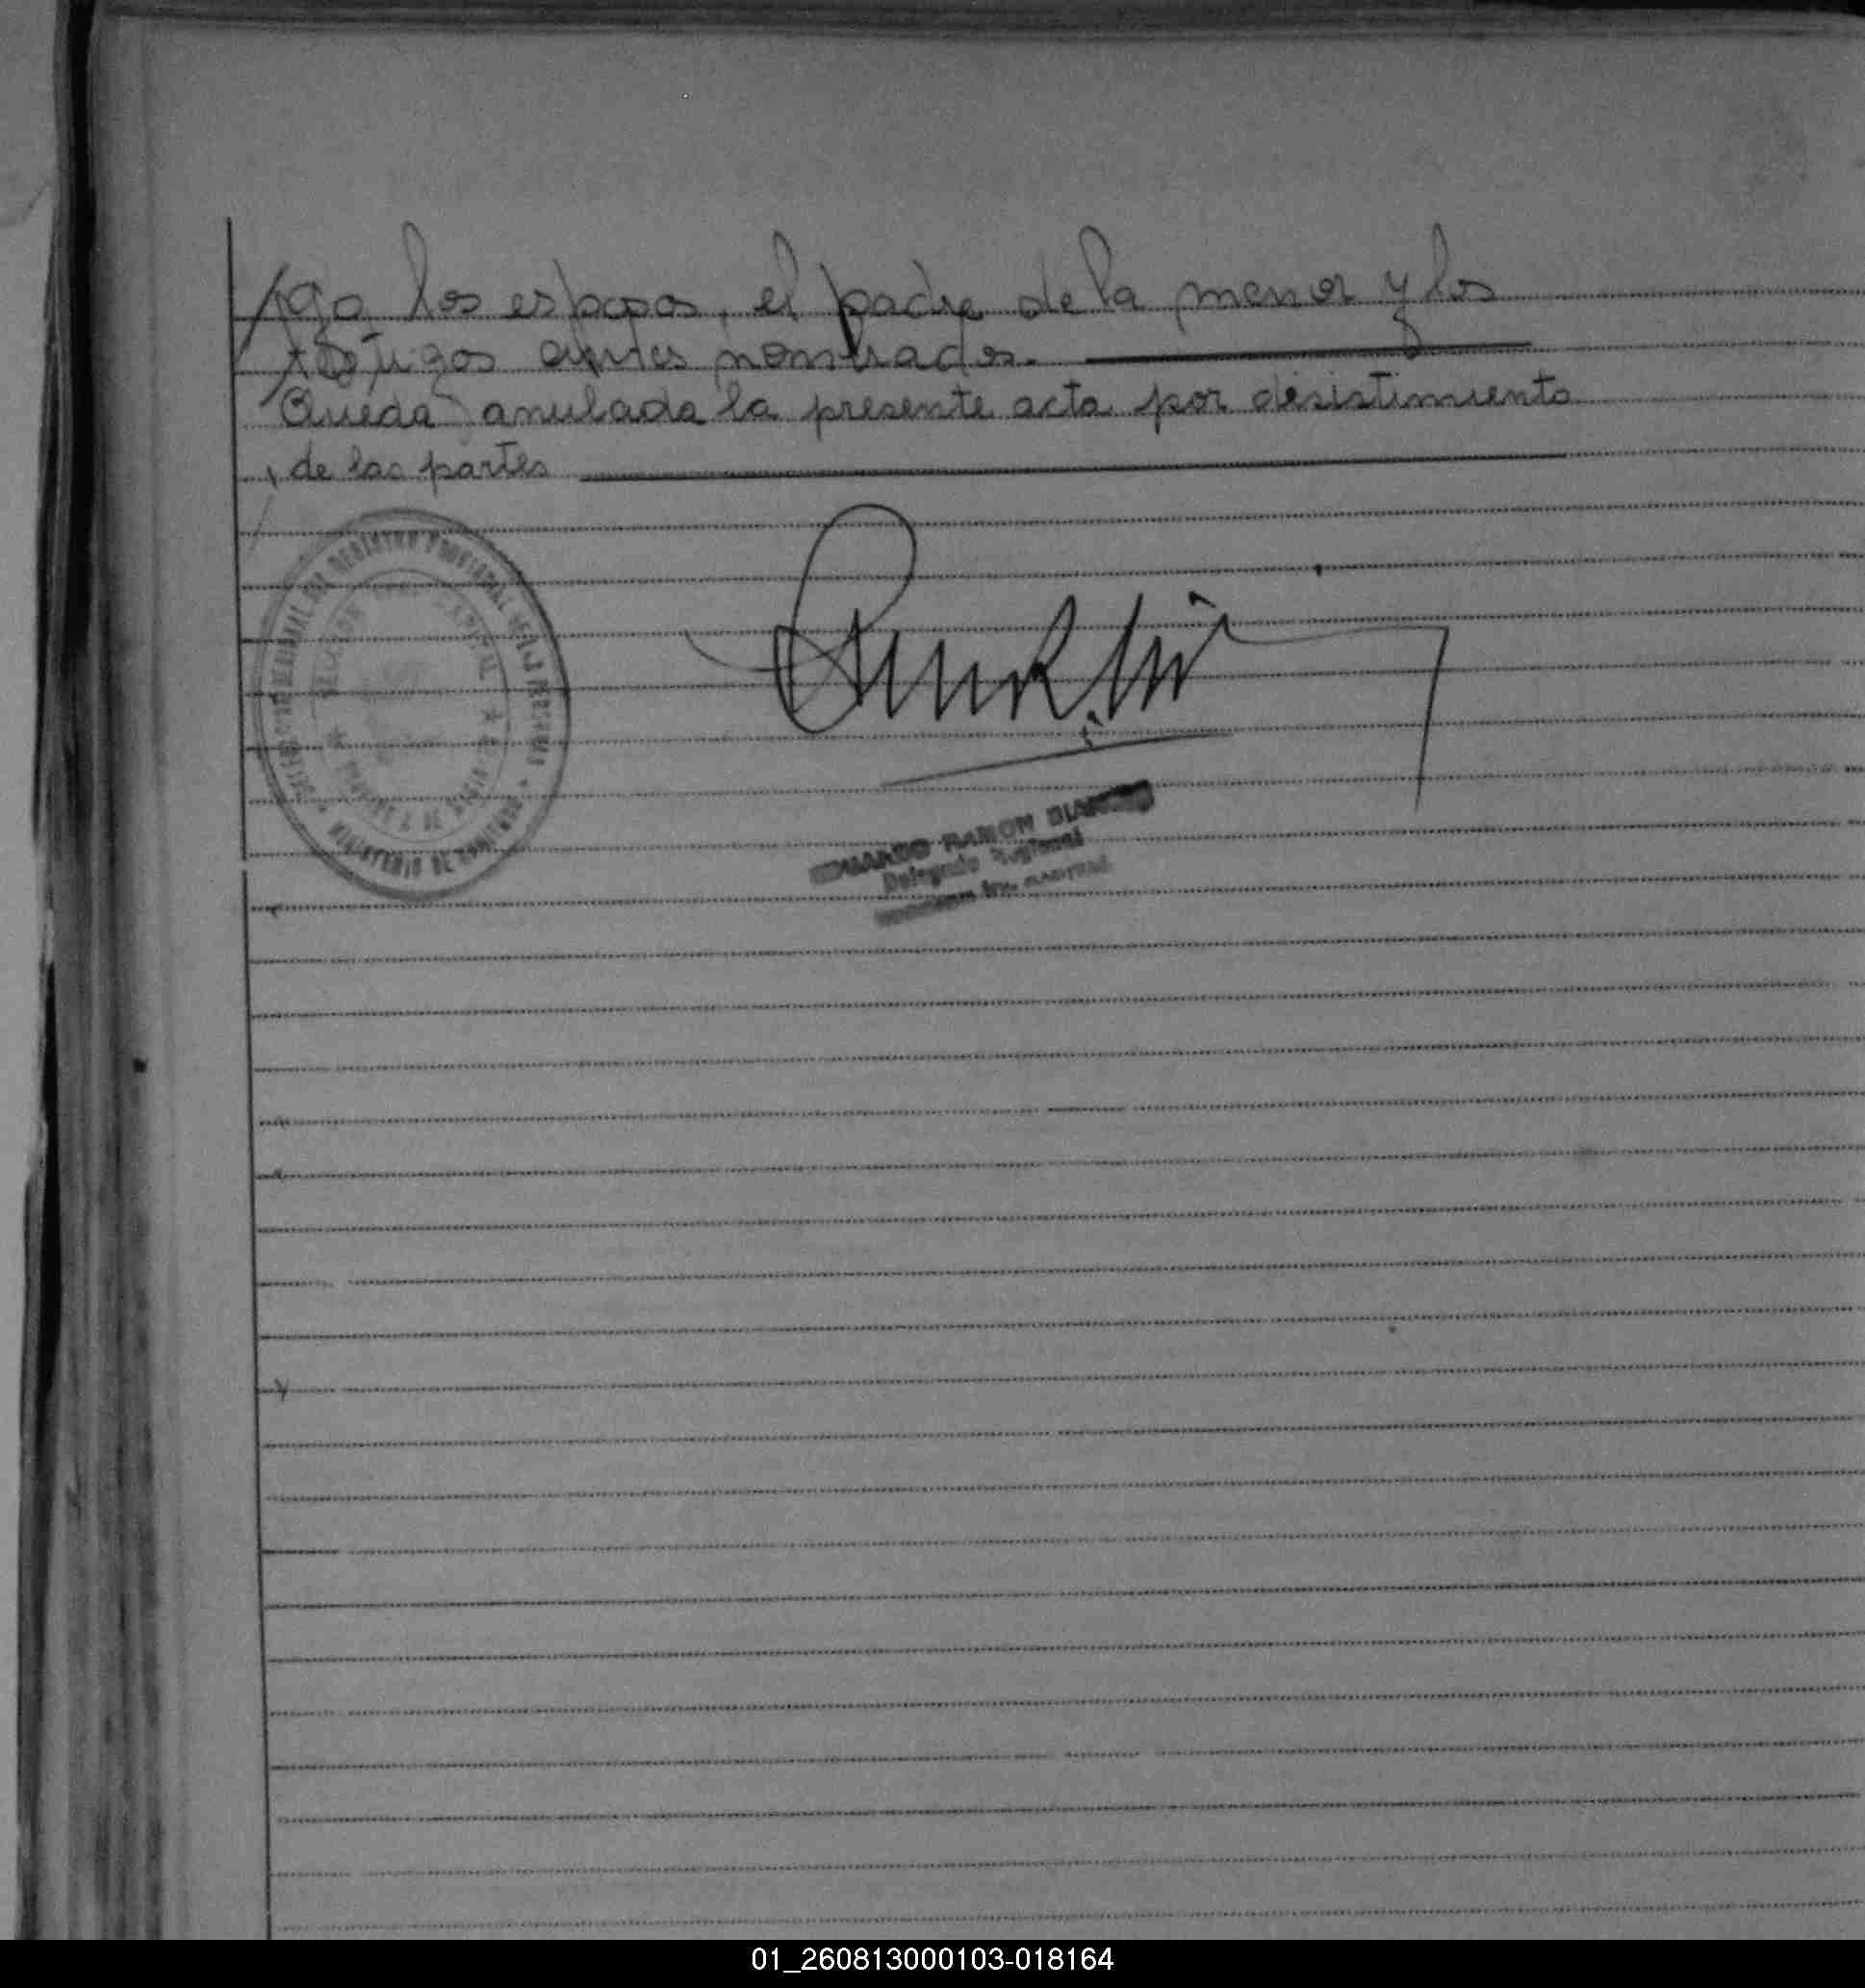 go los esposos, el padre de la menor y los
testigos antes nombrados.
Queda anulada la presente acta por desistimiento
de las partes
REGISTRO PROVINCIAL DE LAS PERSONAS
MINISTERIO DE GOBIERNO
CAPITAL
EDUARDO RAMON
Delegado Regional
CAPITAL
01_260813000103-018164